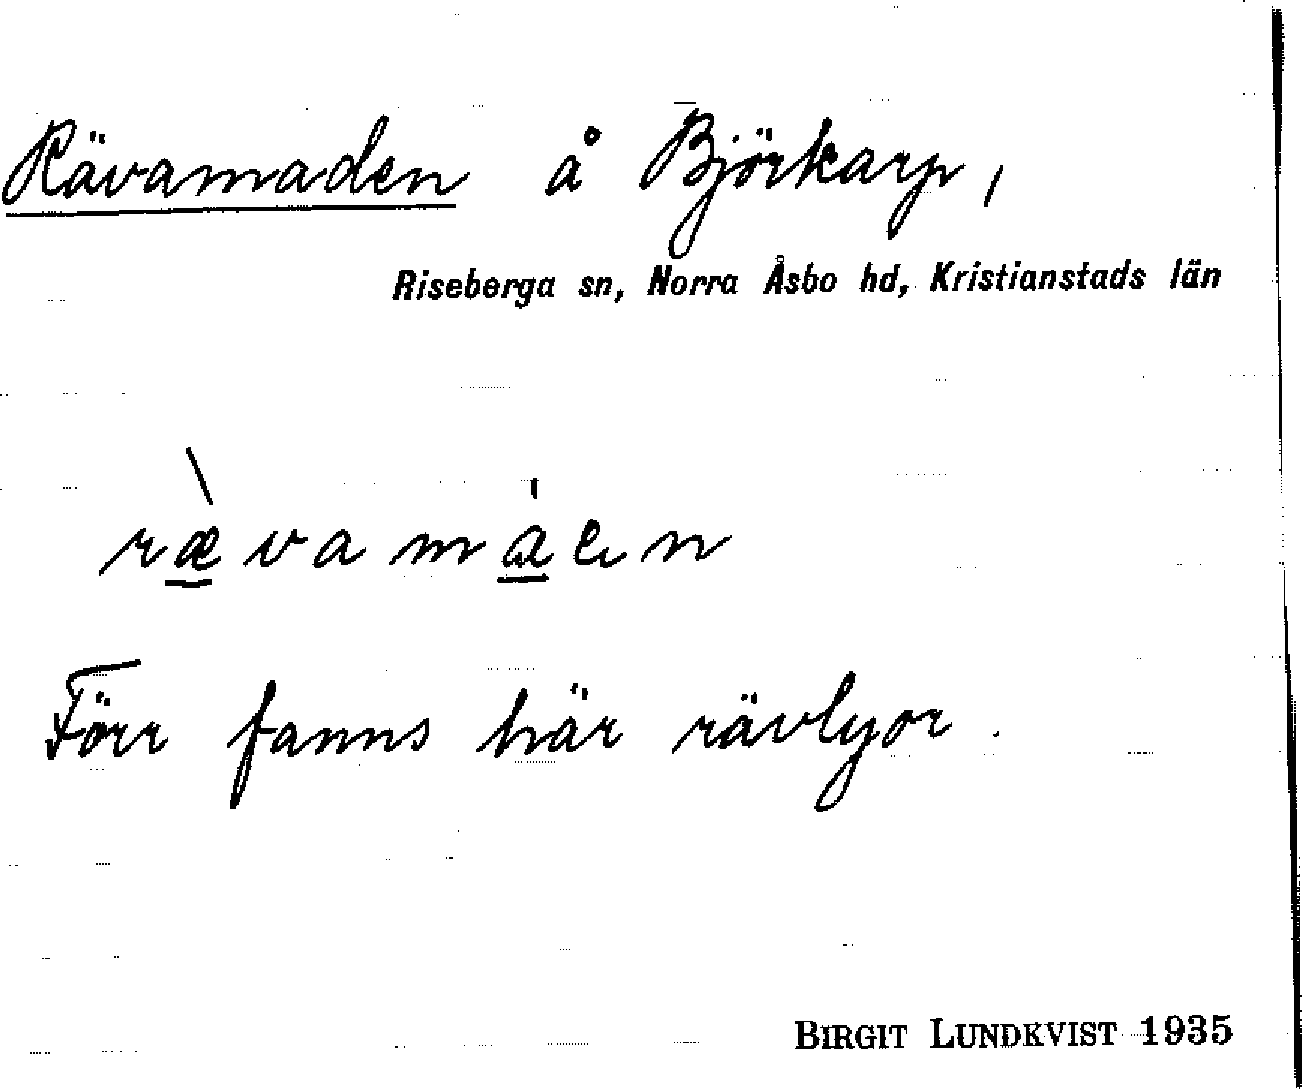 Rävamaden å Björkarp,
Riseberga sn, Norra Åsbo hd, Kristianstads län
rævamaen
Förr fanns här rävlyor.
BIRGIT LUNDKVIST 1935